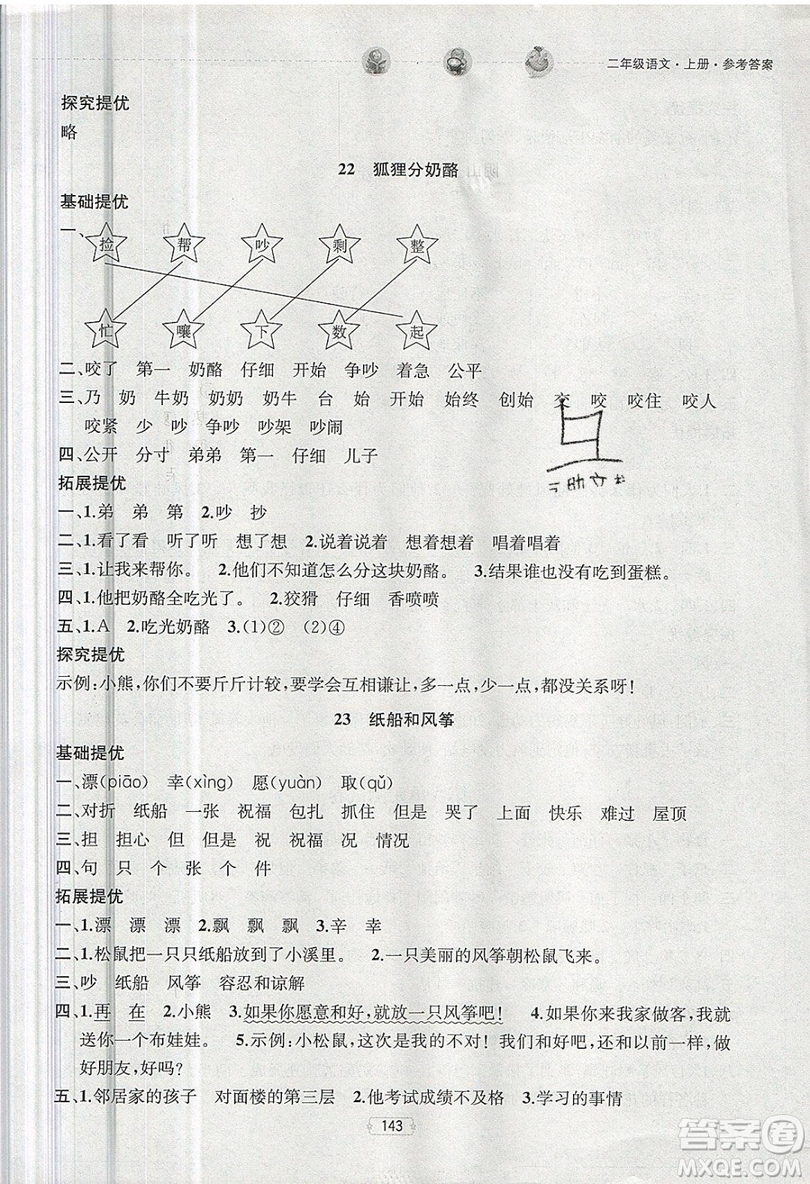 二年级语文·上册·参考答案
探究提优
略
22 狐狸分奶酪
基础提优
一、捡 帮 吵 剩 整
忙 嚷 下 数 起
二、咬了 第一 奶酪 仔细 开始 争吵 着急 公平
三、乃 奶 牛奶 奶奶 奶牛 台 始 开始 始终 创始 交 咬 咬住 咬人
咬紧 少 吵 争吵 吵架 吵闹
四、公开 分寸 弟弟 第一 仔细 儿子
拓展提优
一、1.弟 弟 第 2.吵 抄
二、1.看了看 听了听 想了想 2.说着说着 想着想着 唱着唱着
三、1.让我来帮你。 2.他们不知道怎么分这块奶酪。 3.结果谁也没有吃到蛋糕。
四、1.他把奶酪全吃光了。 2.狡猾 仔细 香喷喷
五、1.A 2.吃光奶酪 3.(1)② (2)④
探究提优
示例:小熊,你们不要斤斤计较,要学会互相谦让,多一点,少一点,都没关系呀!
23 纸船和风筝
基础提优
一、漂(piāo) 幸(xìng) 愿(yuàn) 取(qǔ)
二、对折 纸船 一张 祝福 包扎 抓住 但是 哭了 上面 快乐 难过 屋顶
三、担 担心 但 但是 祝 祝福 况 情况
四、句 只 个 张 个 件
拓展提优
一、1.漂 漂 漂 2.飘 飘 飘 3.辛 幸
二、1.松鼠把一只只纸船放到了小溪里。 2.一只美丽的风筝朝松鼠飞来。
三、吵 纸船 风筝 容忍和谅解
四、1.再 在 2.小熊 3.如果你愿意和好,就放一只风筝吧! 4.如果你来我家做客,我就
送你一个布娃娃。 5.示例:小松鼠,这次是我的不对!我们还和以前一样,做
好朋友,好吗?
五、1.邻居家的孩子 对面楼的第三层 2.他考试成绩不及格 3.学习的事情
143
答案圈
MXQE.COM